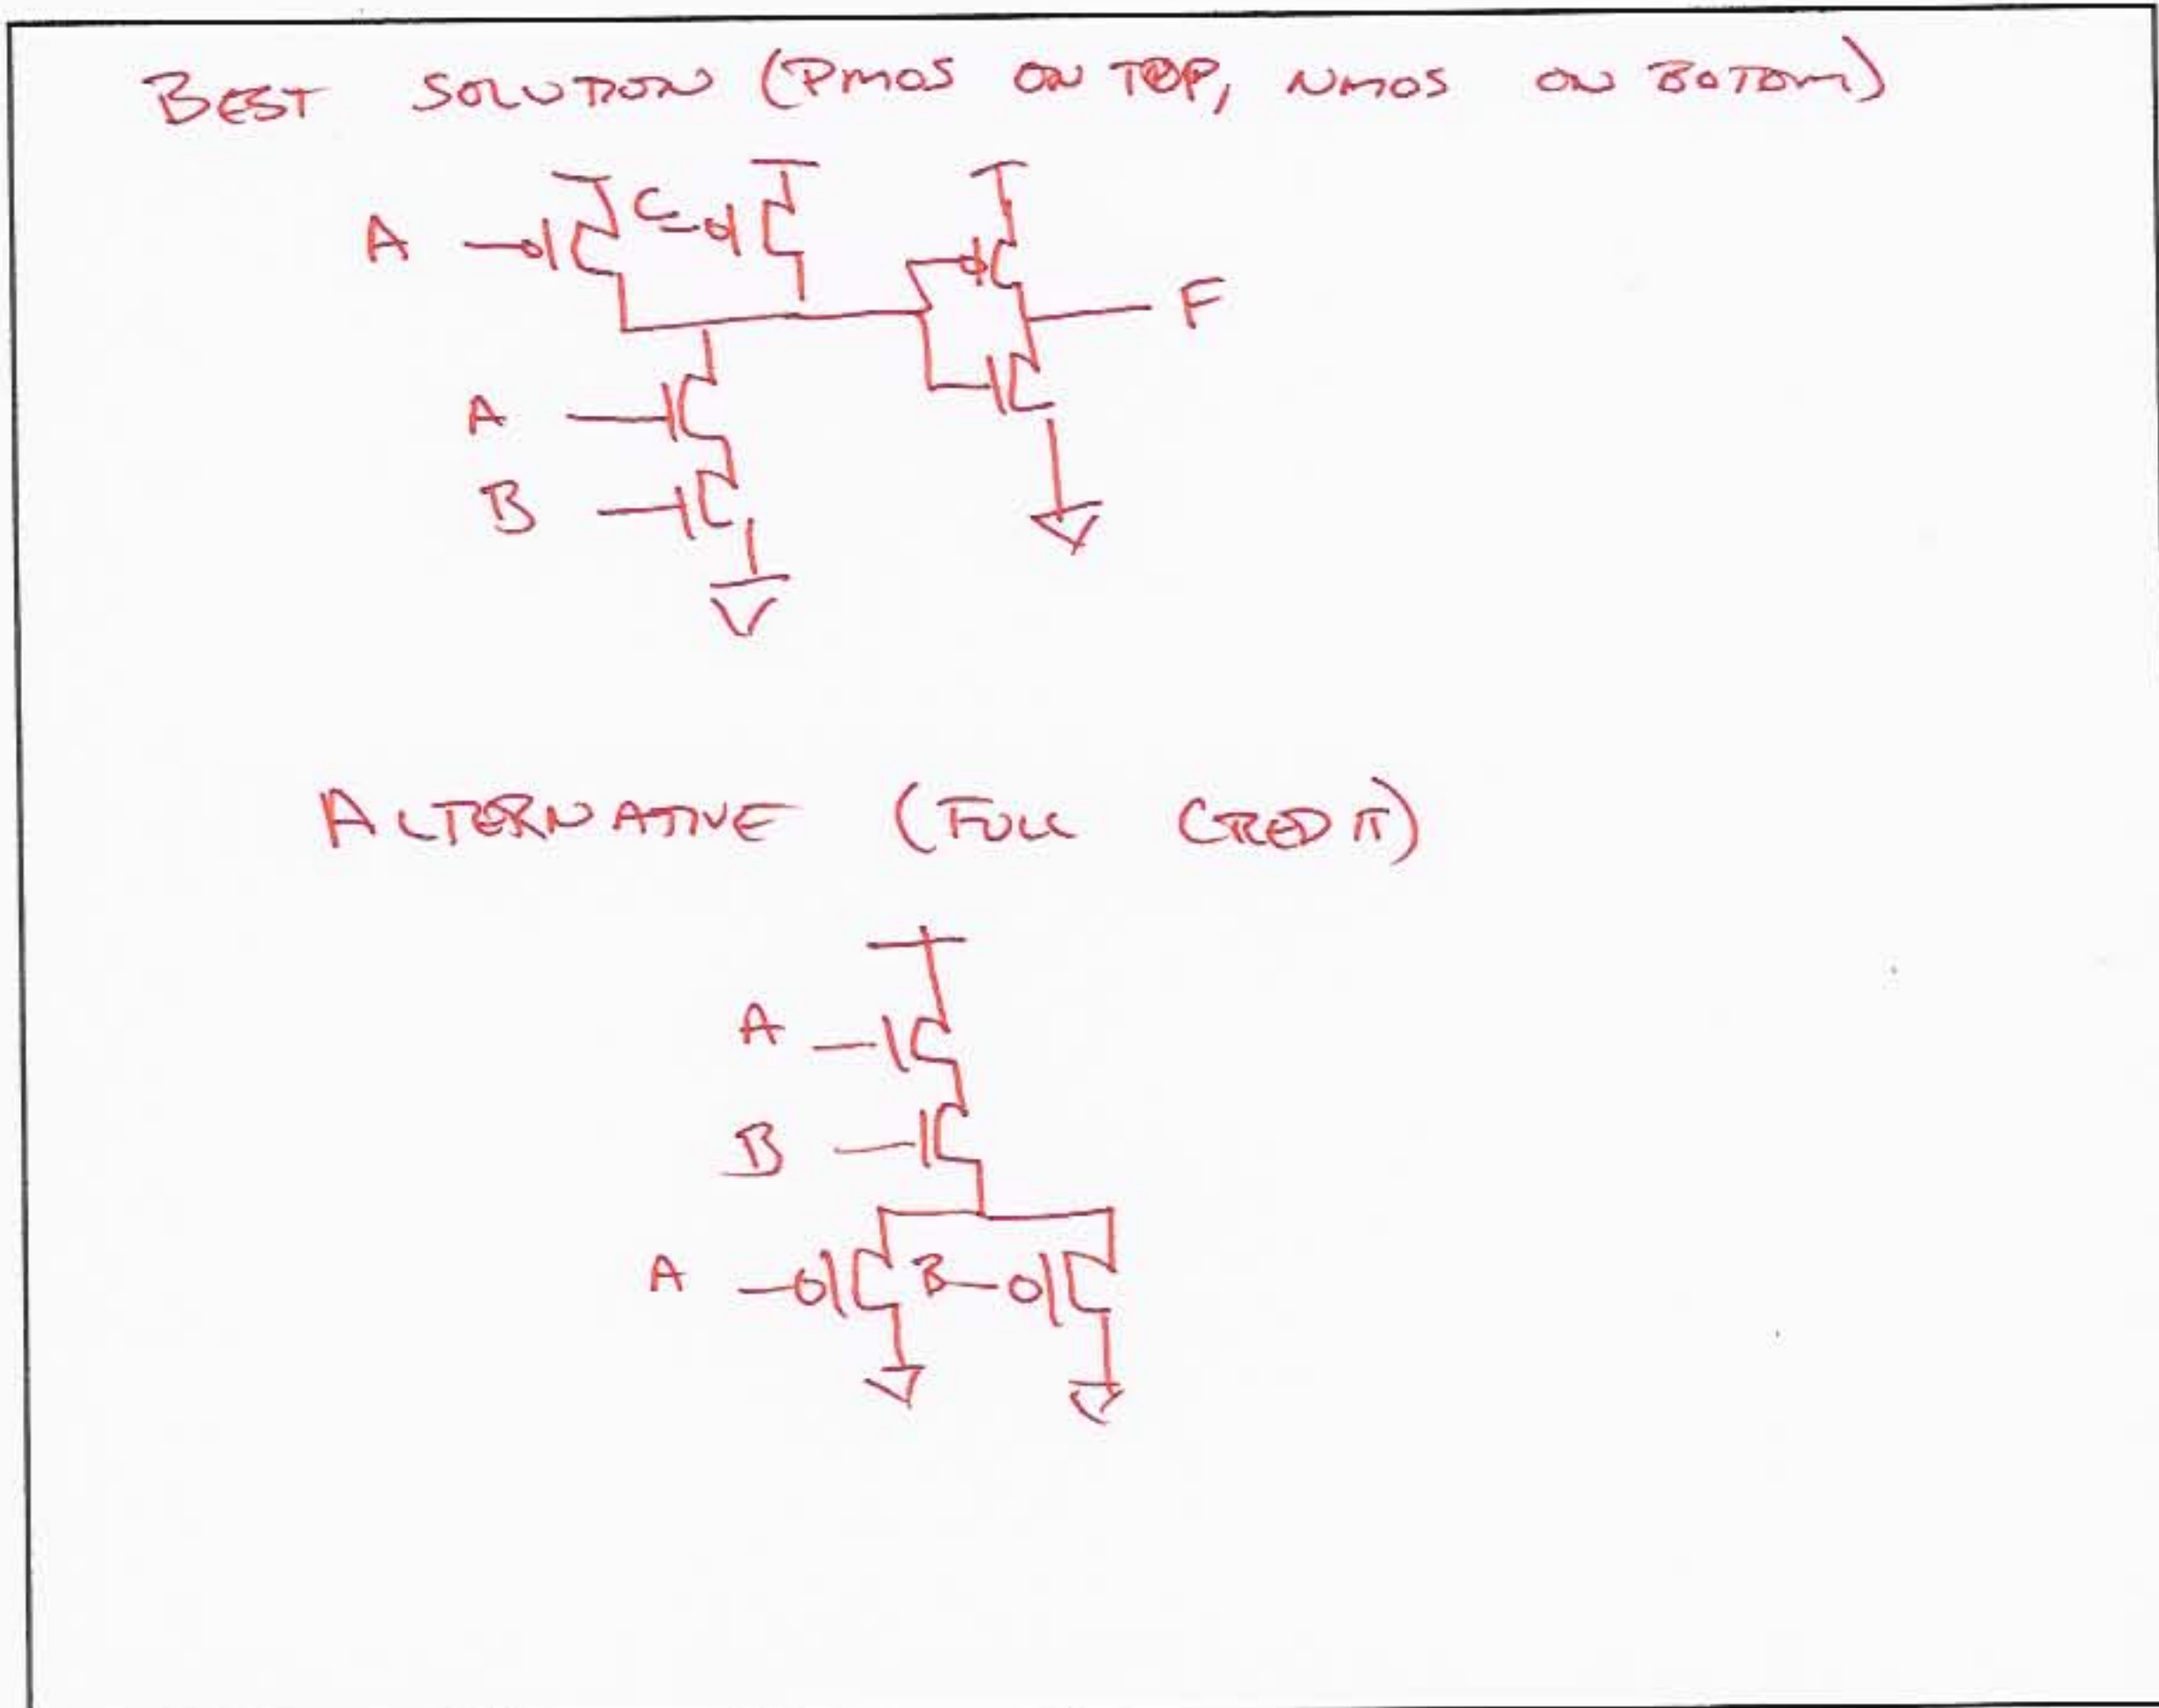 BEST SOLUTION (PMOS ON TOP, NMOS ON BOTOM)
A C
F
A
B
ALTERNATIVE (FULL CREDIT)
A
B
A B